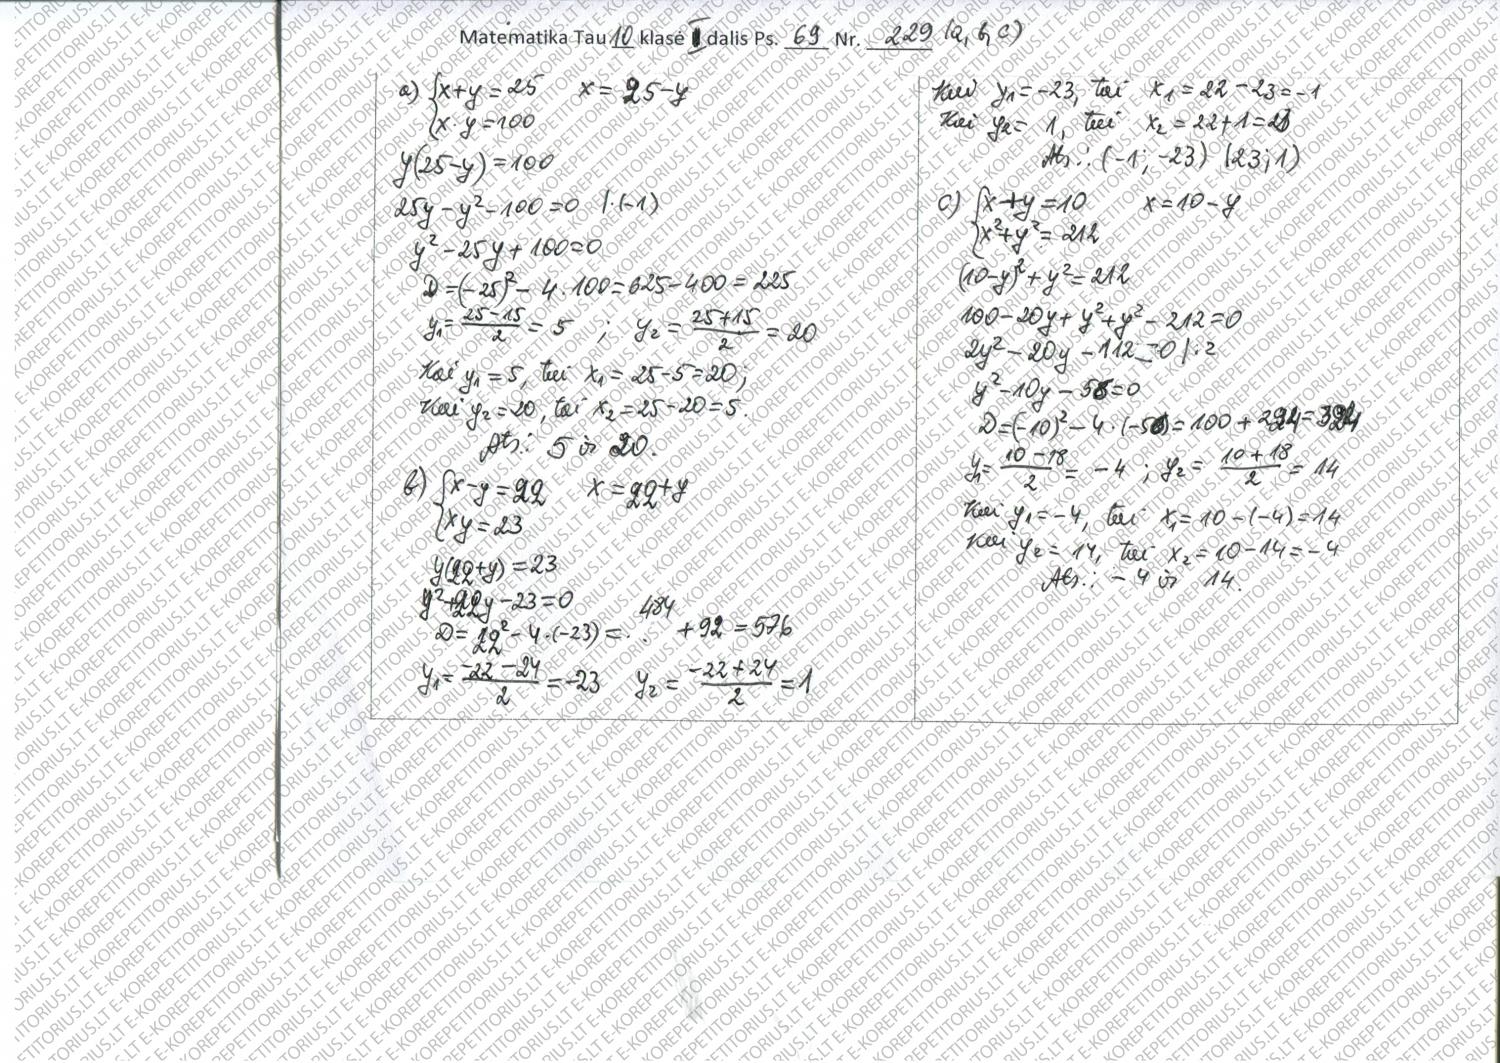 Matematika Tau 10 klasė I dalis Ps. 69 Nr. 229 (a, b, c)
a) {x+y=25 x=25-y
{x·y=100
y(25-y)=100
25y-y²-100=0 |·(-1)
y²-25y+100=0
D=(-25)²-4·100=625-400=225
y₁=(25-15)/2=5 ; y₂=(25+15)/2=20
Kai y₁=5, tai x₁=25-5=20;
Kai y₂=20, tai x₂=25-20=5.
Ats.: 5 ir 20.
b) {x-y=22 x=22+y
{xy=23
y(22+y)=23
y²+22y-23=0
D=22²-4·(-23)=484+92=576
y₁=(-22-24)/2=-23 y₂=(-22+24)/2=1
Kai y₁=-23, tai x₁=22-23=-1
Kai y₂=1, tai x₂=22+1=23
Ats.: (-1; -23) (23; 1)
c) {x+y=10 x=10-y
{x²+y²=212
(10-y)²+y²=212
100-20y+y²+y²-212=0
2y²-20y-112=0 |:2
y²-10y-56=0
D=(-10)²-4·(-56)=100+224=324
y₁=(10-18)/2=-4 ; y₂=(10+18)/2=14
Kai y₁=-4, tai x₁=10-(-4)=14
Kai y₂=14, tai x₂=10-14=-4
Ats.: -4 ir 14.
E-KOREPETITORIUS.LT